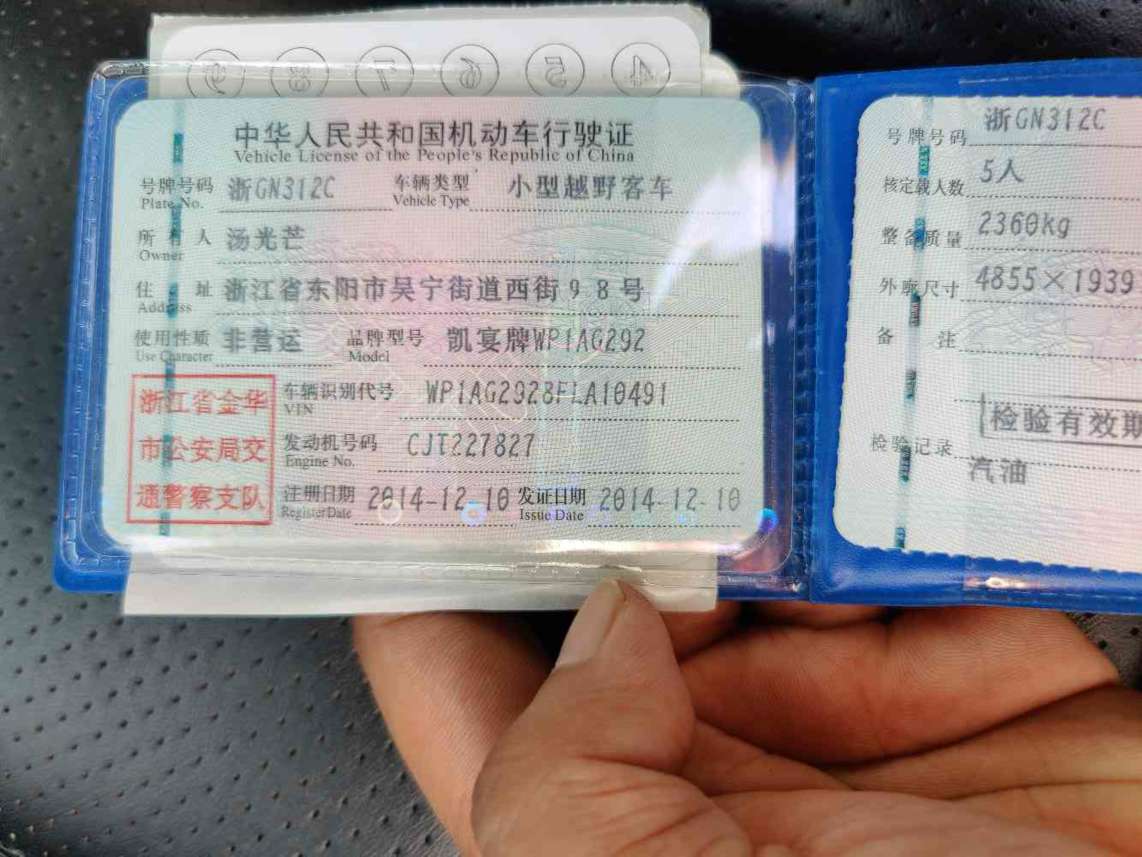 ④ ⑤ ⑥ ⑦ ⑧ ⑨
中华人民共和国机动车行驶证
Vehicle License of the People's Republic of China
号牌号码 浙GN312C 车辆类型 小型越野客车
Plate No. Vehicle Type
所有人 汤光芒
Owner
住址 浙江省东阳市吴宁街道西街98号
Address
使用性质 非营运 品牌型号 凯宴牌WP1AG292
Use Character Model
浙江省金华
市公安局交
通警察支队
车辆识别代号 WP1AG2928FLA10491
VIN
发动机号码 CJT227827
Engine No.
注册日期 2014-12-10 发证日期 2014-12-10
Register Date Issue Date
号牌号码 浙GN312C
核定载人数 5人
整备质量 2360kg
外廓尺寸 4855×1939
备注
检验有效期
检验记录
汽油